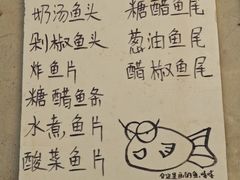 奶汤鱼头
剁椒鱼头
炸鱼片
糖醋鱼条
水煮鱼片
酸菜鱼片
糖醋鱼尾
葱油鱼尾
醋椒鱼尾